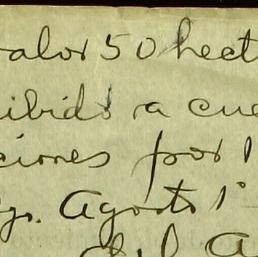 alor 50 hect
ibido a cue
ciones por 1
Agosto 1º